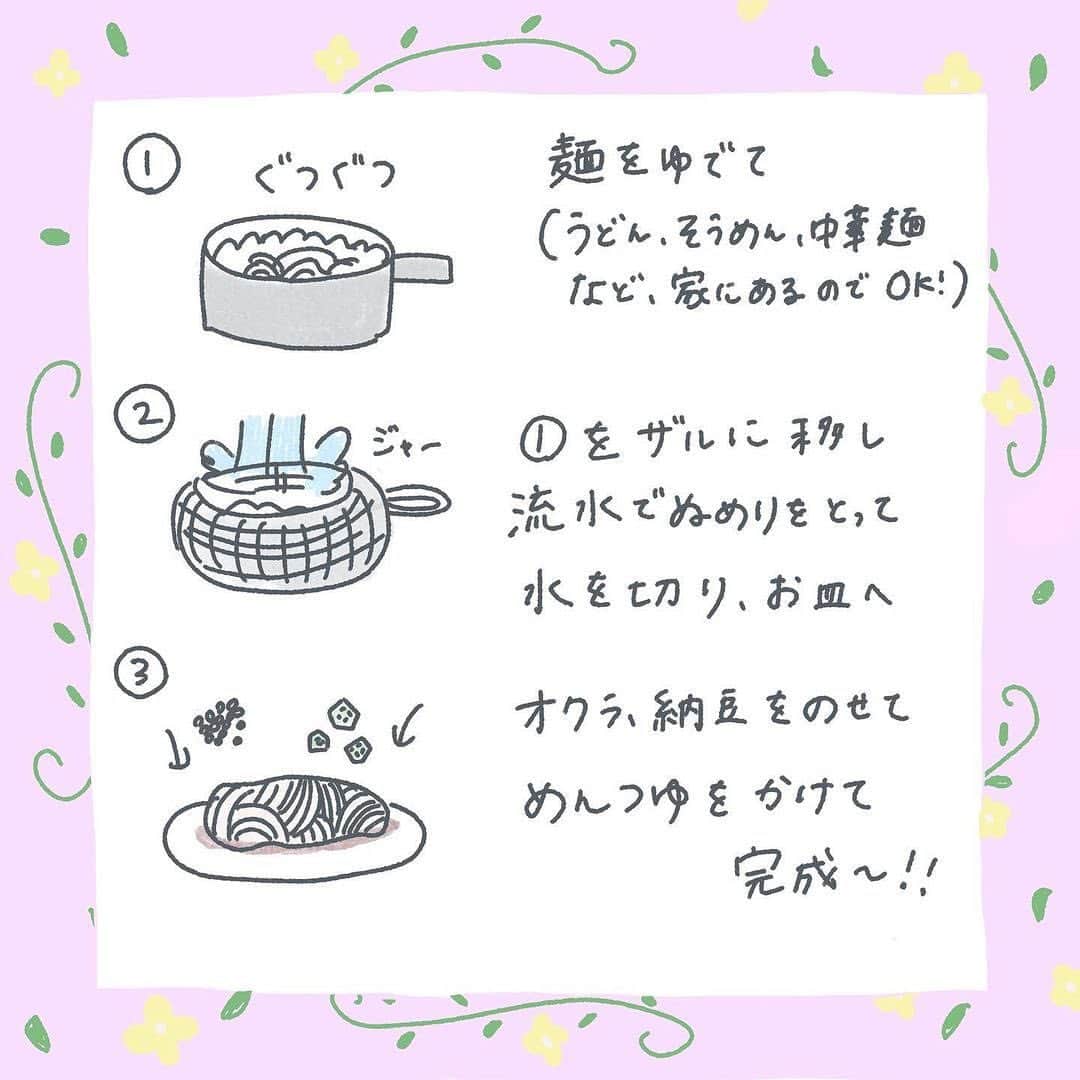 ①
ぐつぐつ
麺をゆでて
(うどん、そうめん、中華麺
など、家にあるのでOK!)
②
ジャー
①をザルに移し
流水でぬめりをとって
水を切り、お皿へ
③
オクラ、納豆をのせて
めんつゆをかけて
完成〜!!